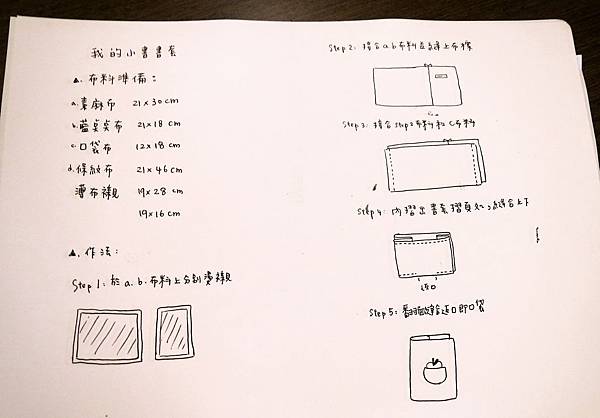 我的小書書套
▲. 布料準備：
a. 素麻布 21x30cm
b. 藍桌桌布 21x18cm
c. 口袋布 12x18cm
d. 條紋布 21x46cm
薄布襯 19x28cm
19x16cm
▲. 作法：
Step 1: 於a.b.布料上分別燙襯
Step 2: 接合a b布料且縫上布標
Step 3: 接合step2布料和c布料
Step 4: 內摺出書套摺頁處，縫合上下
返口
Step 5: 翻面縫合返口即口袋